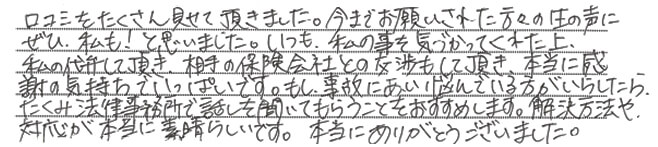 口コミをたくさん見せて頂きました。今までお願いされた方々の生の声に
ぜひ、私も!と思いました。いつも、私の事を気づかってくれた上、
私の代弁して頂き、相手の保険会社との交渉もして頂き、本当に感
謝の気持ちでいっぱいです。もし、事故にあい悩んでいる方がいらしたら、
たくみ法律事務所で話しを聞いてもらうことをおすすめします。解決方法や、
対応が本当に素晴らしいです。本当にありがとうございました。